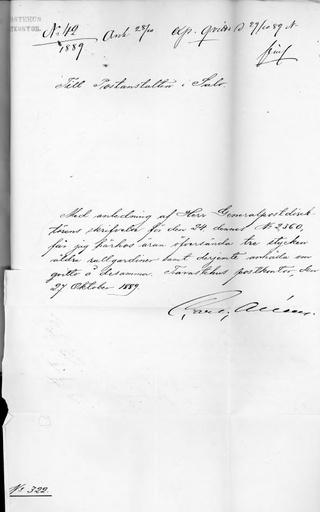 TAVASTEHUS
POSTKONTOR.
No 42
1889
Ank 28/10
Till Postanstalten i Salo.
Med anledning af Herr Generalpostdirek-
törens skrifvelse för den 24 dennes No 2360,
får jag härhos äran öfversända tre stycken
äldre rullgardiner samt derjemte anhålla om
qvitto å desamma. Tavastehus postkontor, den
27 Oktober 1889.
No 322.